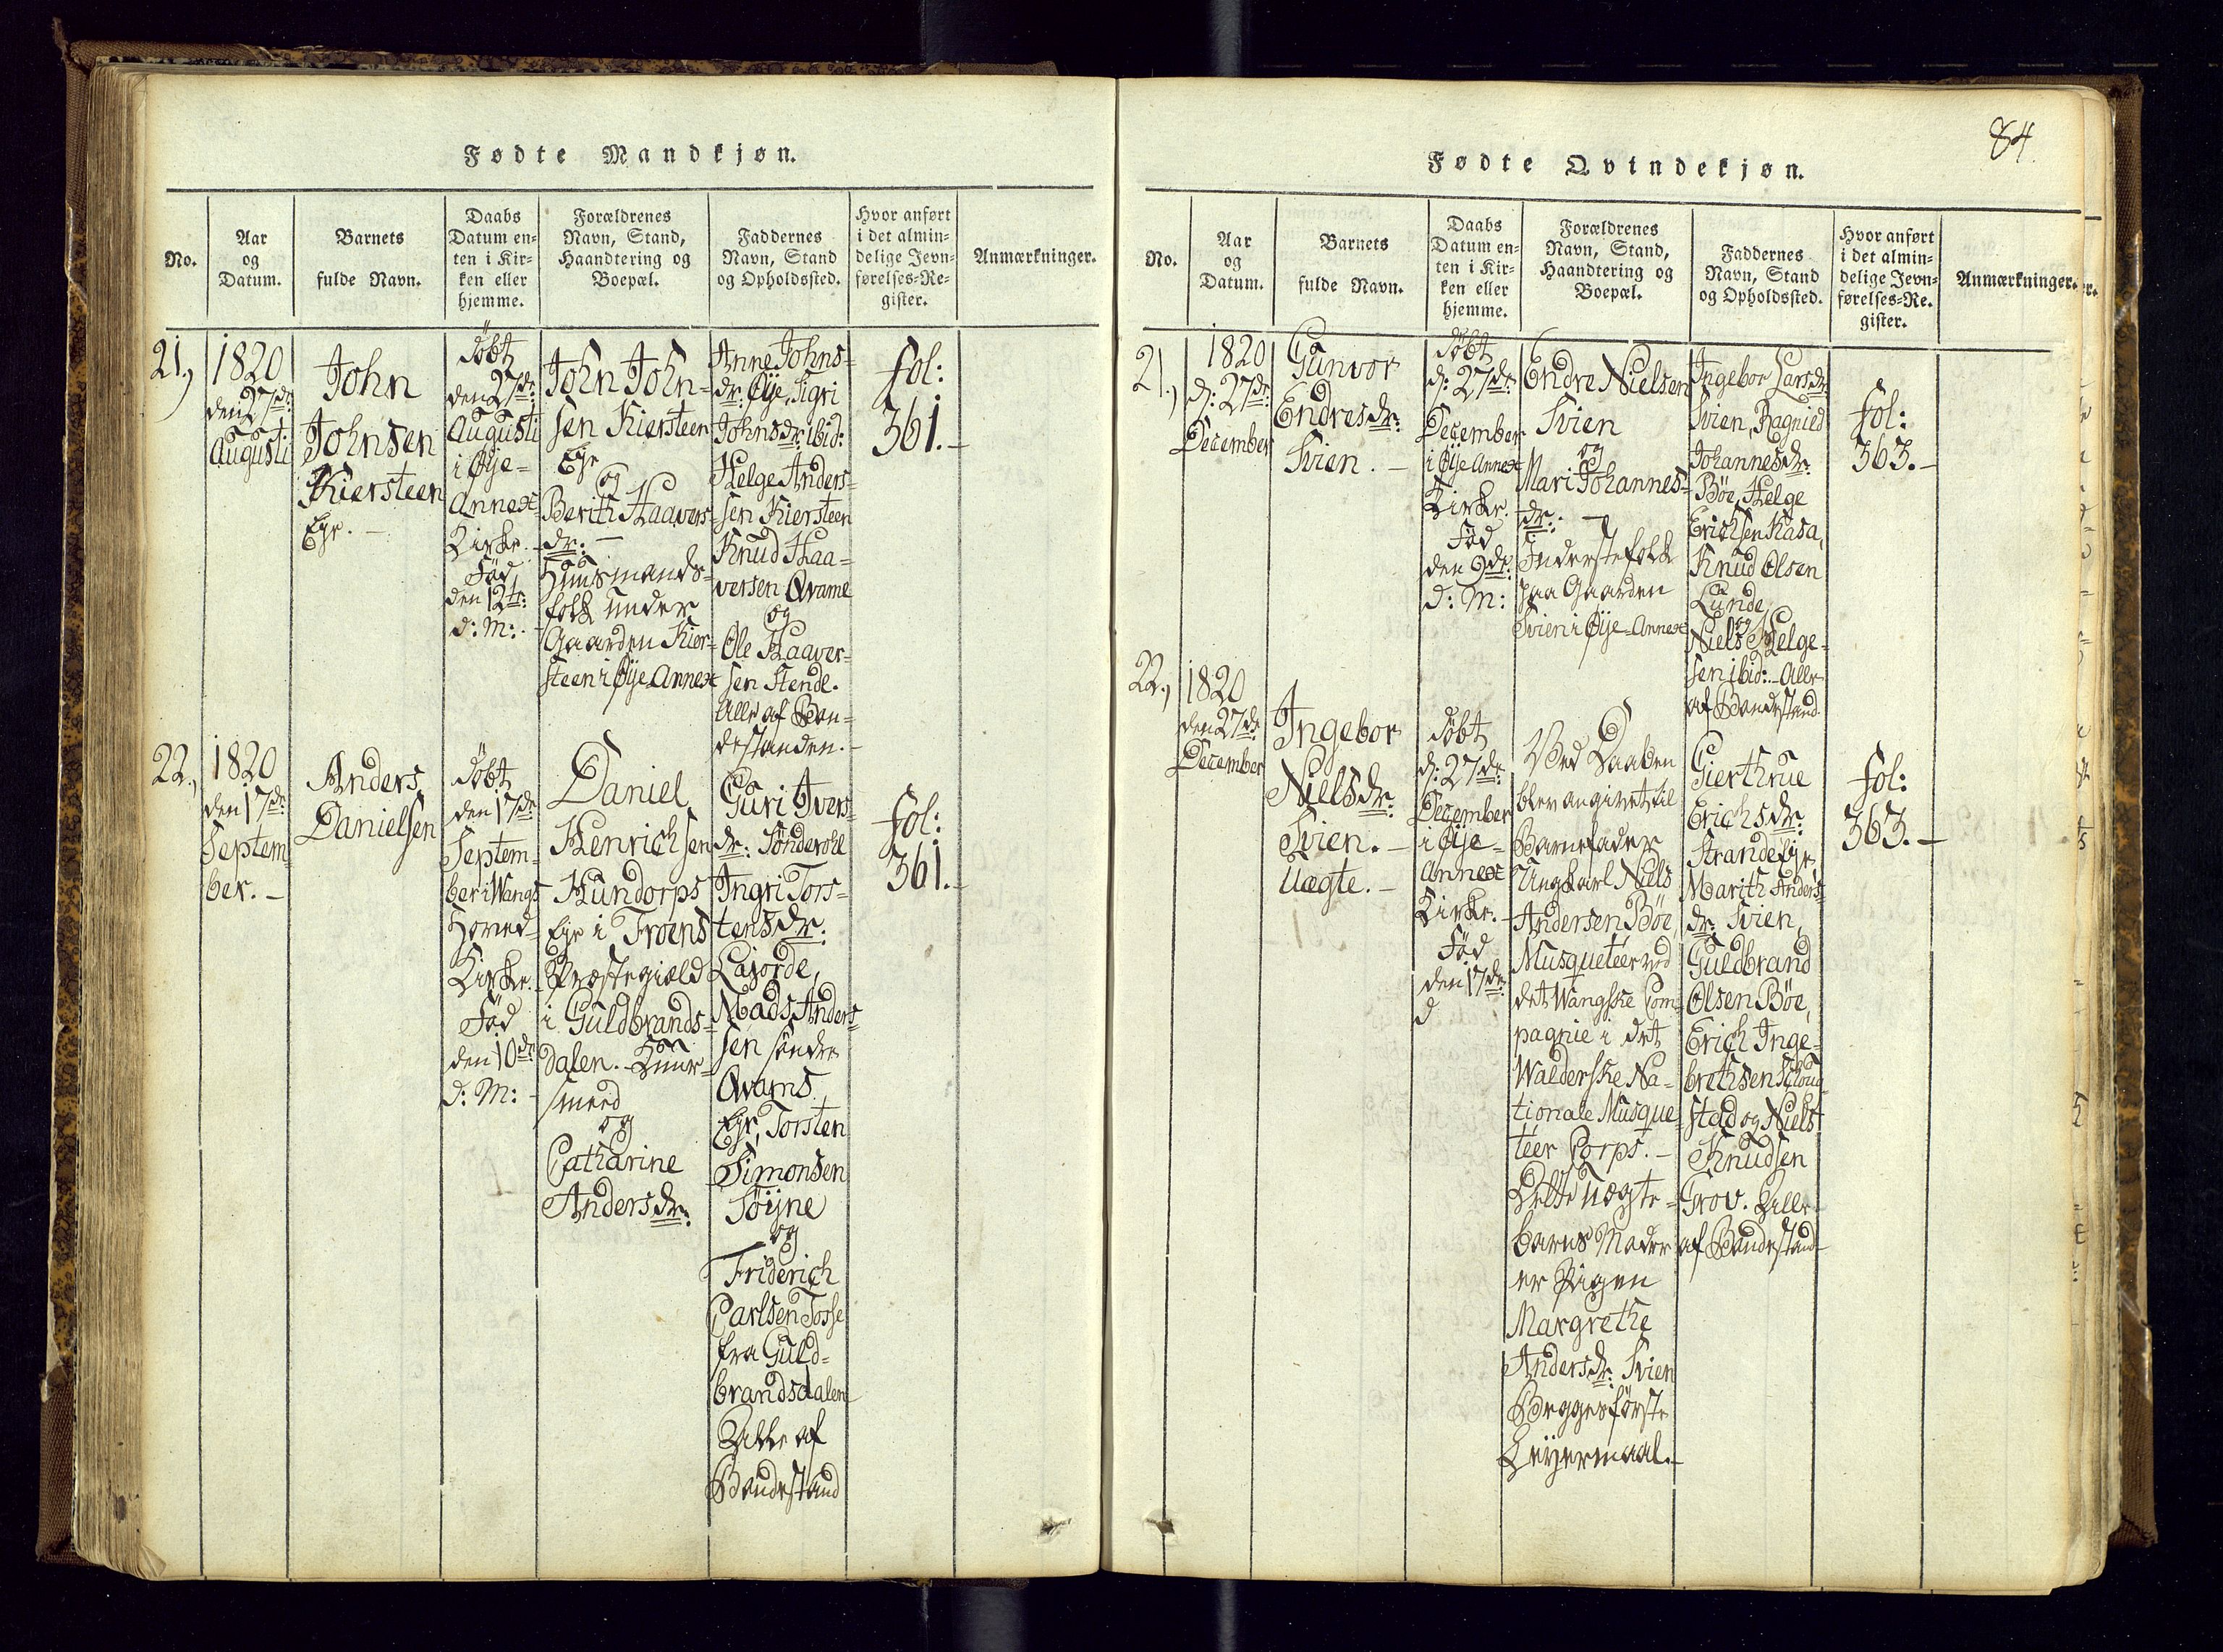 84.
Fødte Mandkjøn.
No.
Aar
og
Datum.
Barnets
fulde Navn.
Daabs
Datum en-
ten i Kir-
ken eller
hjemme.
Forældrenes
Navn, Stand,
Haandtering og
Boepæl.
Faddernes
Navn, Stand
og Opholdssted.
Hvor anført
i det almin-
delige Jevn-
førelses-Re-
gister.
Anmærkninger.
21,
1820
den 27de
Augusti
John
Johnsen
Kiersteen
Eje. -
döbt
den 27de
Augusti
i Øije-
Annex
Kirke. -
Fød
den 12te
d: M: -
John John-
sen Kiersteen
Eje
og
Berith Haavers-
dr: -
Huusmands-
folk under
Gaarden Kier-
steen i Øije-Annex
Anne Johns-
dr: Øije, Sigri
Johnsdr: ibid:
Helge Anders-
sen Kiersteen
Knud Haa-
versen Qvame
og
Ole Haaver-
sen Stende.
Alle af Bon-
destanden. -
fol:
361. -
22,
1820
den 17de
Septem-
ber. -
Anders
Danielsen
döbt
den 17de
Septem-
ber i Wangs
Hoved-
Kirke. -
Fød
den 10de
d: M: -
Daniel
Henrichsen
Hundorps
Eje i Froens
Præstegield
i Guldbrands-
dalen. -
smed
og
Catharine
Andersdr:
Guri Ivers-
dr: Sönderohl
Ingri Tors-
tensdr:
Lajorde,
Mads Anders-
sen söndre
Qvams
Eje, Torsten
Simonsen
Söijne
og
Friderich
Carlsen Tosse
fra Guld-
brandsdalen
Alle af
Bondestand
fol:
361. -
Fødte Qvindekjøn.
No.
Aar
og
Datum.
Barnets
fulde Navn.
Daabs
Datum en-
ten i Kir-
ken eller
hjemme.
Forældrenes
Navn, Stand,
Haandtering og
Boepæl.
Faddernes
Navn, Stand
og Opholdssted.
Hvor anført
i det almin-
delige Jevn-
førelses-Re-
gister.
Anmærkninger.
21,
1820
d: 27de
December
Gunvor
Endresdr:
Svien. -
döbt
d: 27de
December
i Øije Annex
Kirke. -
Fød
den 9de
d: M:
Endre Nielsen
Svien
og
Mari Johannes-
dr: -
Inderstefolk
paa Gaarden
Svien i Øije-Annex
Ingebor Larsdr:
Svien, Ragnild
Johannesdr:
Böe, Helge
Erichsen Kasa,
Knud Olsen
Lunde,
og
Niels Helge-
sen ibid: - Alle
af Bondestand.
fol:
363. -
22,
1820
den 27de
December
Ingebor
Nielsdr:
Svien. -
Uægte. -
döbt
d: 27de
December
i Øije-
Annex
Kirke. -
Fød
den 17de
d
Ved Daaben
blev angivet til
Barnefader
Ungkarl Niels
Andersen Böe,
Musqueteer ved
det Wangske Com-
pagnie i det
Walderske Na-
tionale Musque-
teer Corps. -
Dette uægte-
barns Moder
er Pigen
Margrethe
Andersdr: Svien
Begges første
Leijermaal. -
Gierthrue
Erichsdr:
Strande Eje,
Marith Anders-
dr: Svien,
Guldbrand
Olsen Böe,
Erich Inge-
brethsen Schou-
stad og Niels
Knudsen
Grov. Alle
af Bondestand
fol:
363. -